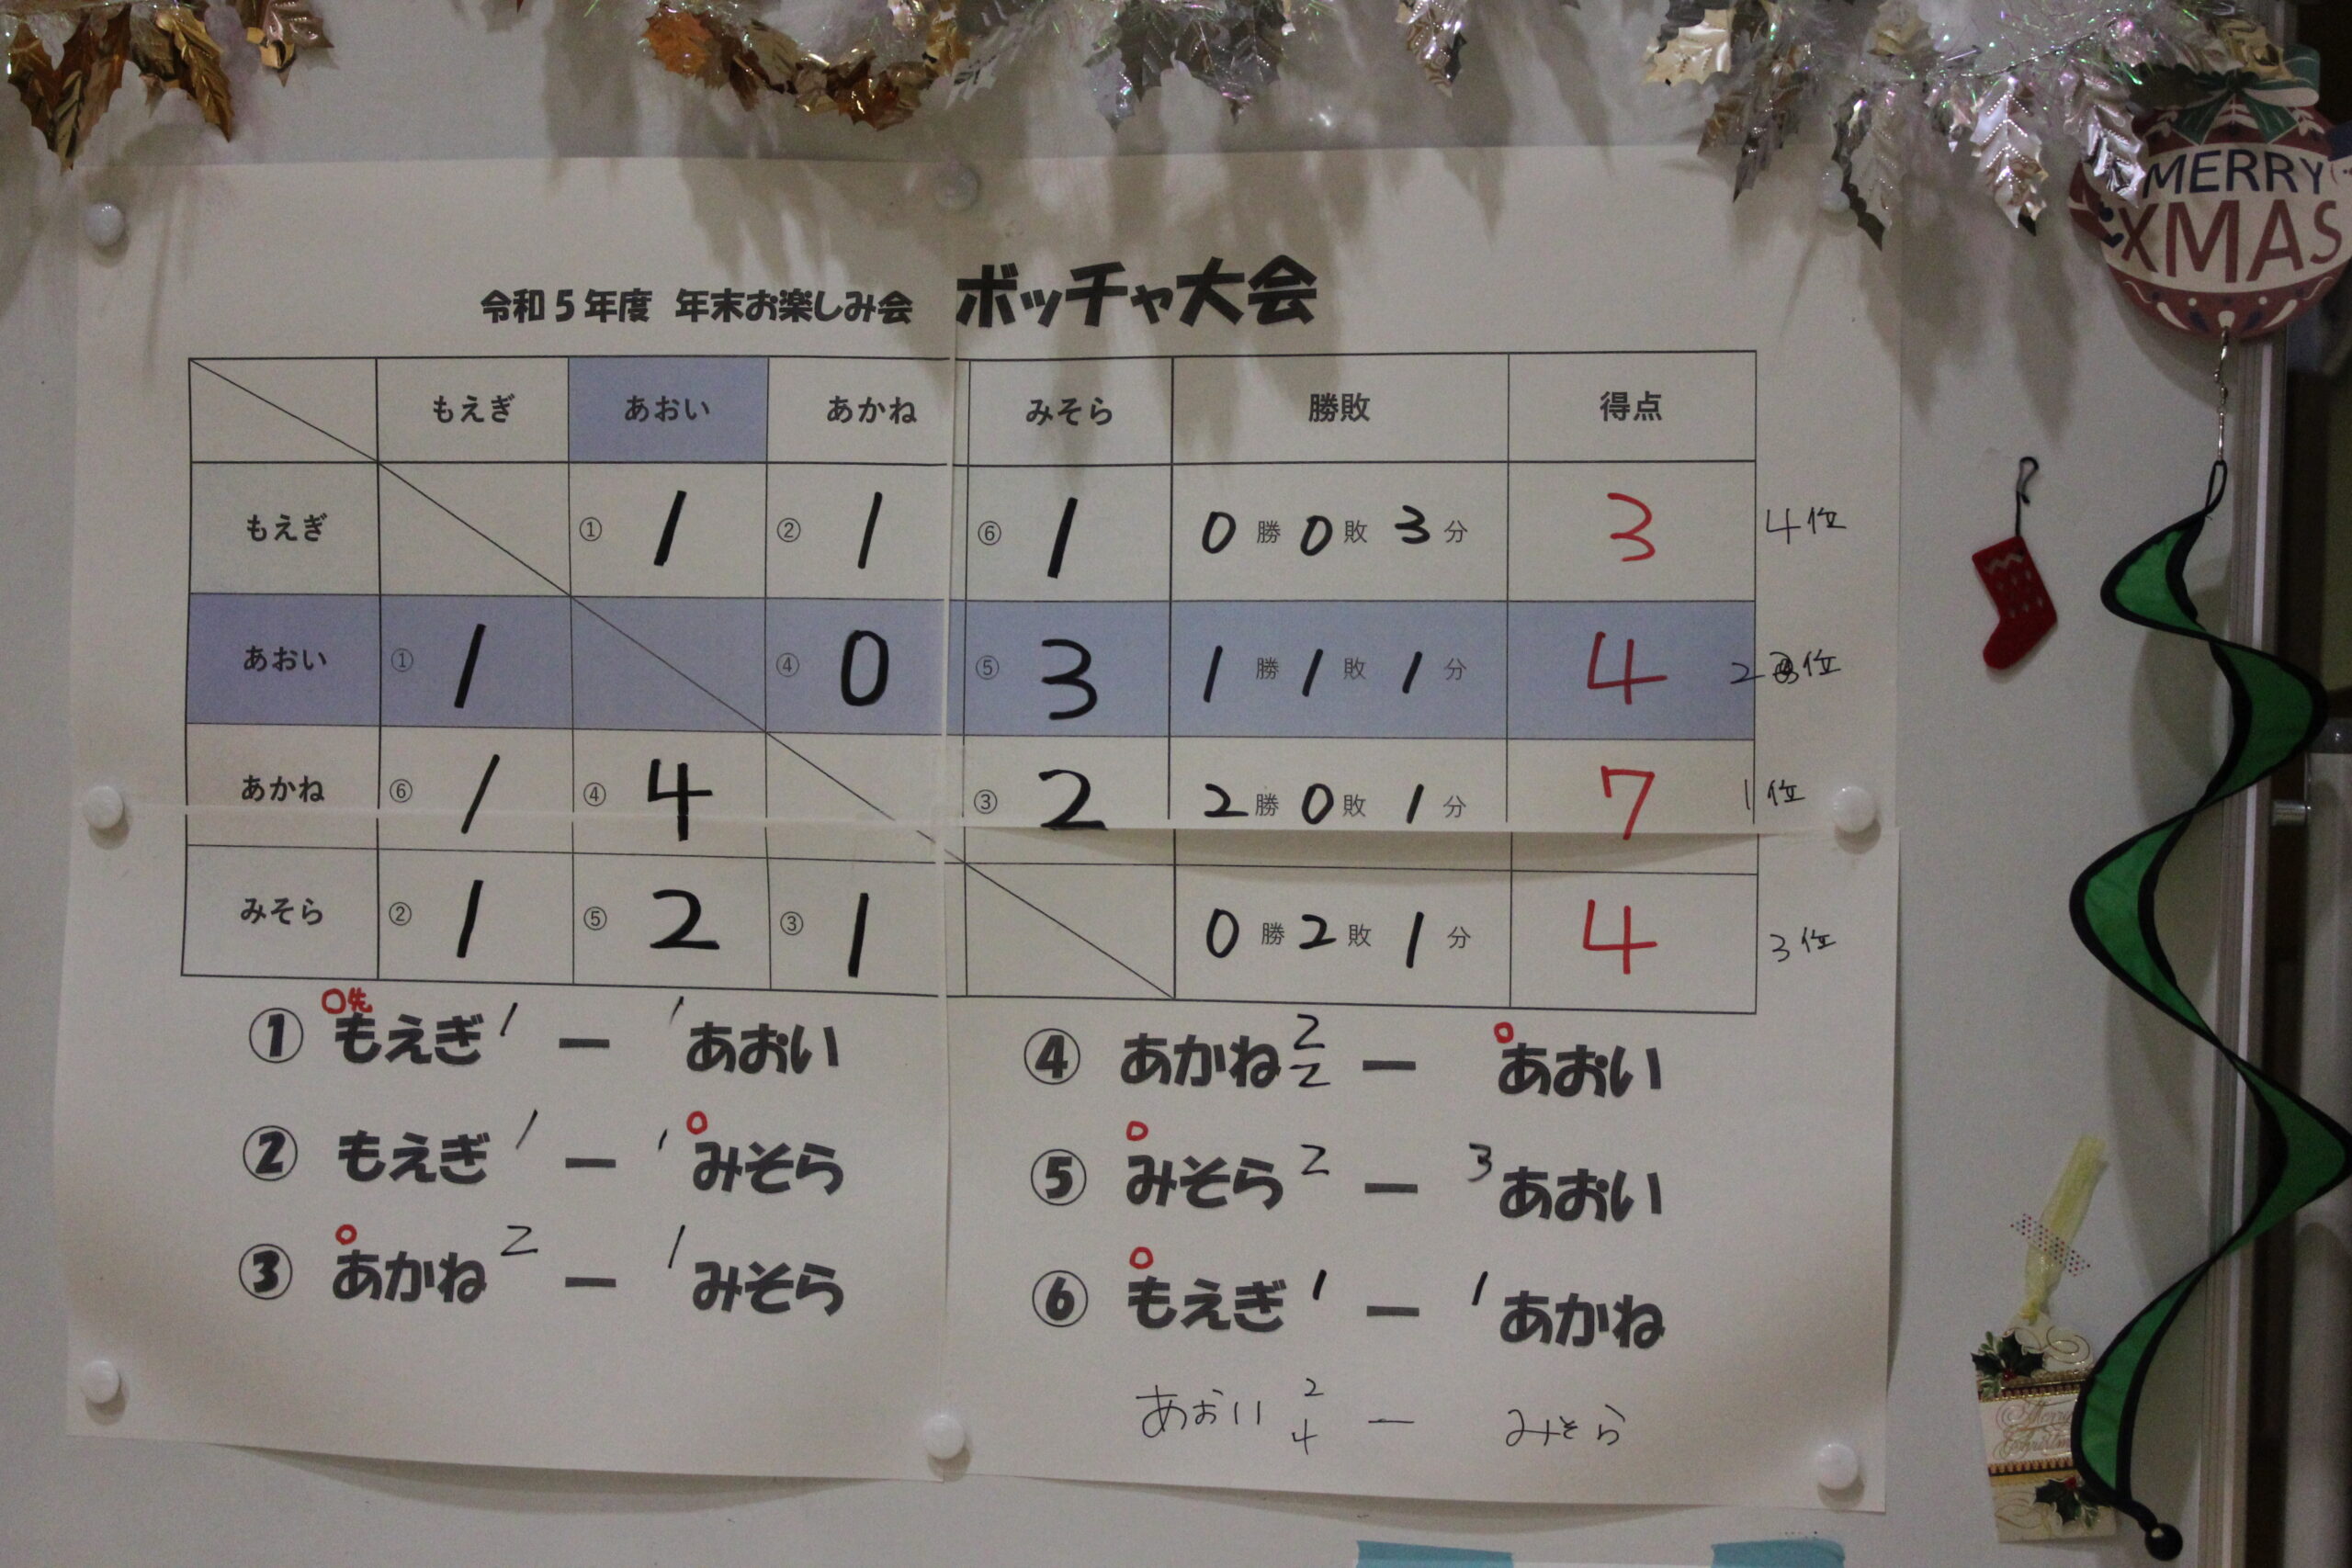 MERRY
XMAS
令和5年度 年末お楽しみ会 ボッチャ大会
もえぎ あおい あかね みそら 勝敗 得点
もえぎ ① 1 ② 1 ⑥ 1 0勝0敗3分 3 4位
あおい ① 1 ④ 0 ⑤ 3 1勝1敗1分 4 2位
あかね ⑥ 1 ④ 4 ③ 2 2勝0敗1分 7 1位
みそら ② 1 ⑤ 2 ③ 1 0勝2敗1分 4 3位
○先
① もえぎ 1 ー 1 あおい
② もえぎ 1 ー 1 みそら
③ あかね 2 ー 1 みそら
④ あかね 2 2 ー あおい
⑤ みそら 2 ー 3 あおい
⑥ もえぎ 1 ー 1 あかね
あおい 2 4 ー みそら